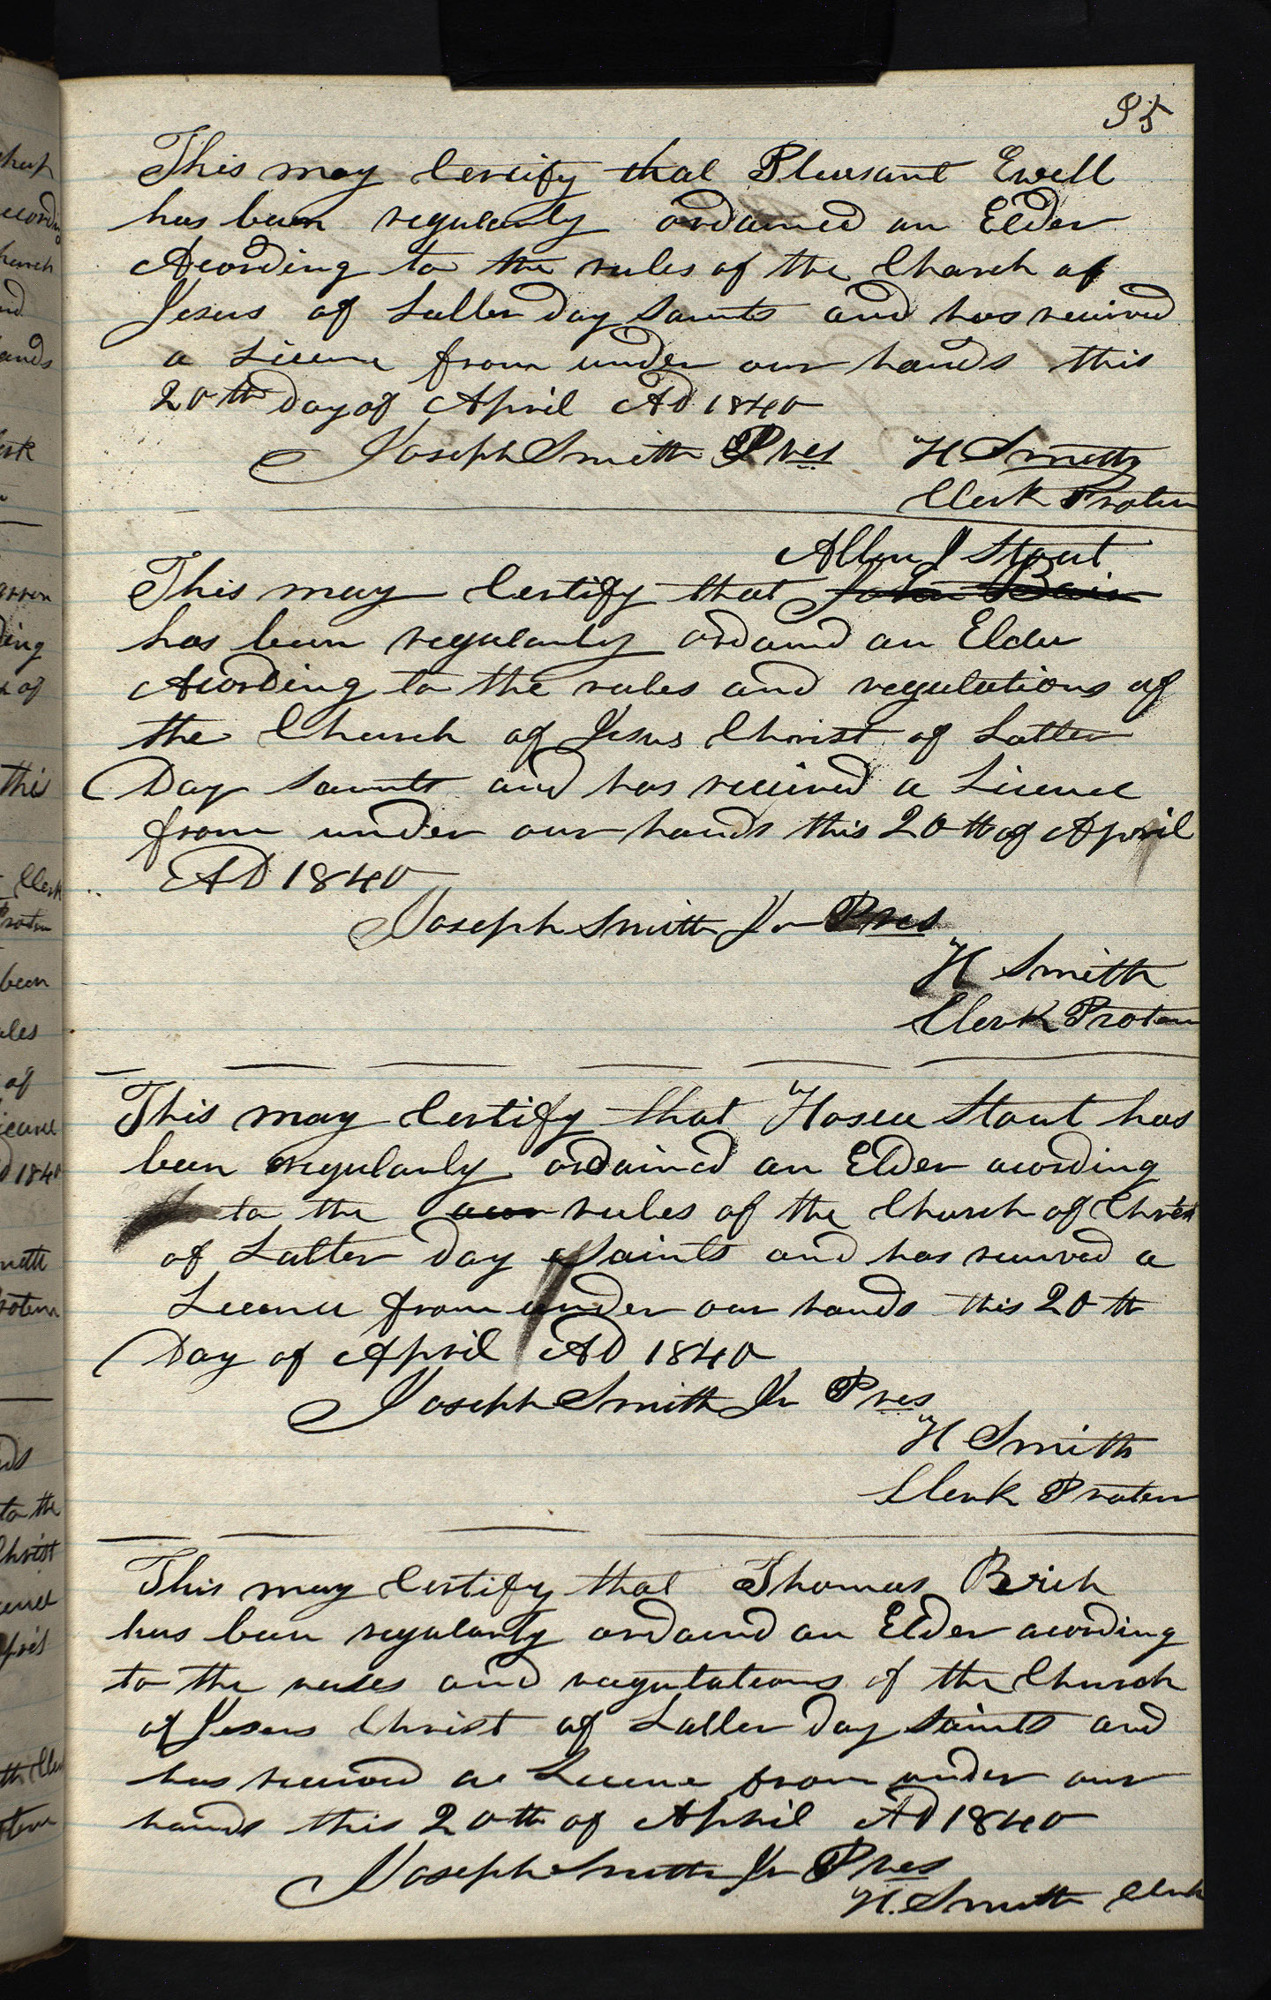 95
This may Certify that Pleasant Ewell
has been regularly ordained an Elder
Acording to the rules of the Church of
Jesus of Latter Day Saints and has recived
a Licence from under our hands this
20th Day of April AD 1840
Joseph Smith Pres H Smith
Clerk Protem
Allen J Stout
This may Certify that John Bair
has been regularly ordaind an Elder
Acording to the rules and regulations of
the Church of Jesus Christ of Latter
Day Saints and has recived a Licence
from under our hands this 20th of April
AD 1840
Joseph Smith Jr Pres
H Smith
Clerk Protem
This may Certify that Hosea Stout has
been regularly ordained an Elder acording
to the rules of the Church of Christ
of Latter Day Saints and has recived a
Licence from under our hands this 20th
Day of April AD 1840
Joseph Smith Jr Pres
H Smith
Clerk Protem
This may Certify that Thomas Brich
has been regularly ordaind an Elder acording
to the rules and regulations of the Church
of Jesus Christ of Latter Day Saints and
has recived a Licence from under our
hands this 20th of April AD 1840
Joseph Smith Jr Pres
H. Smith Clerk